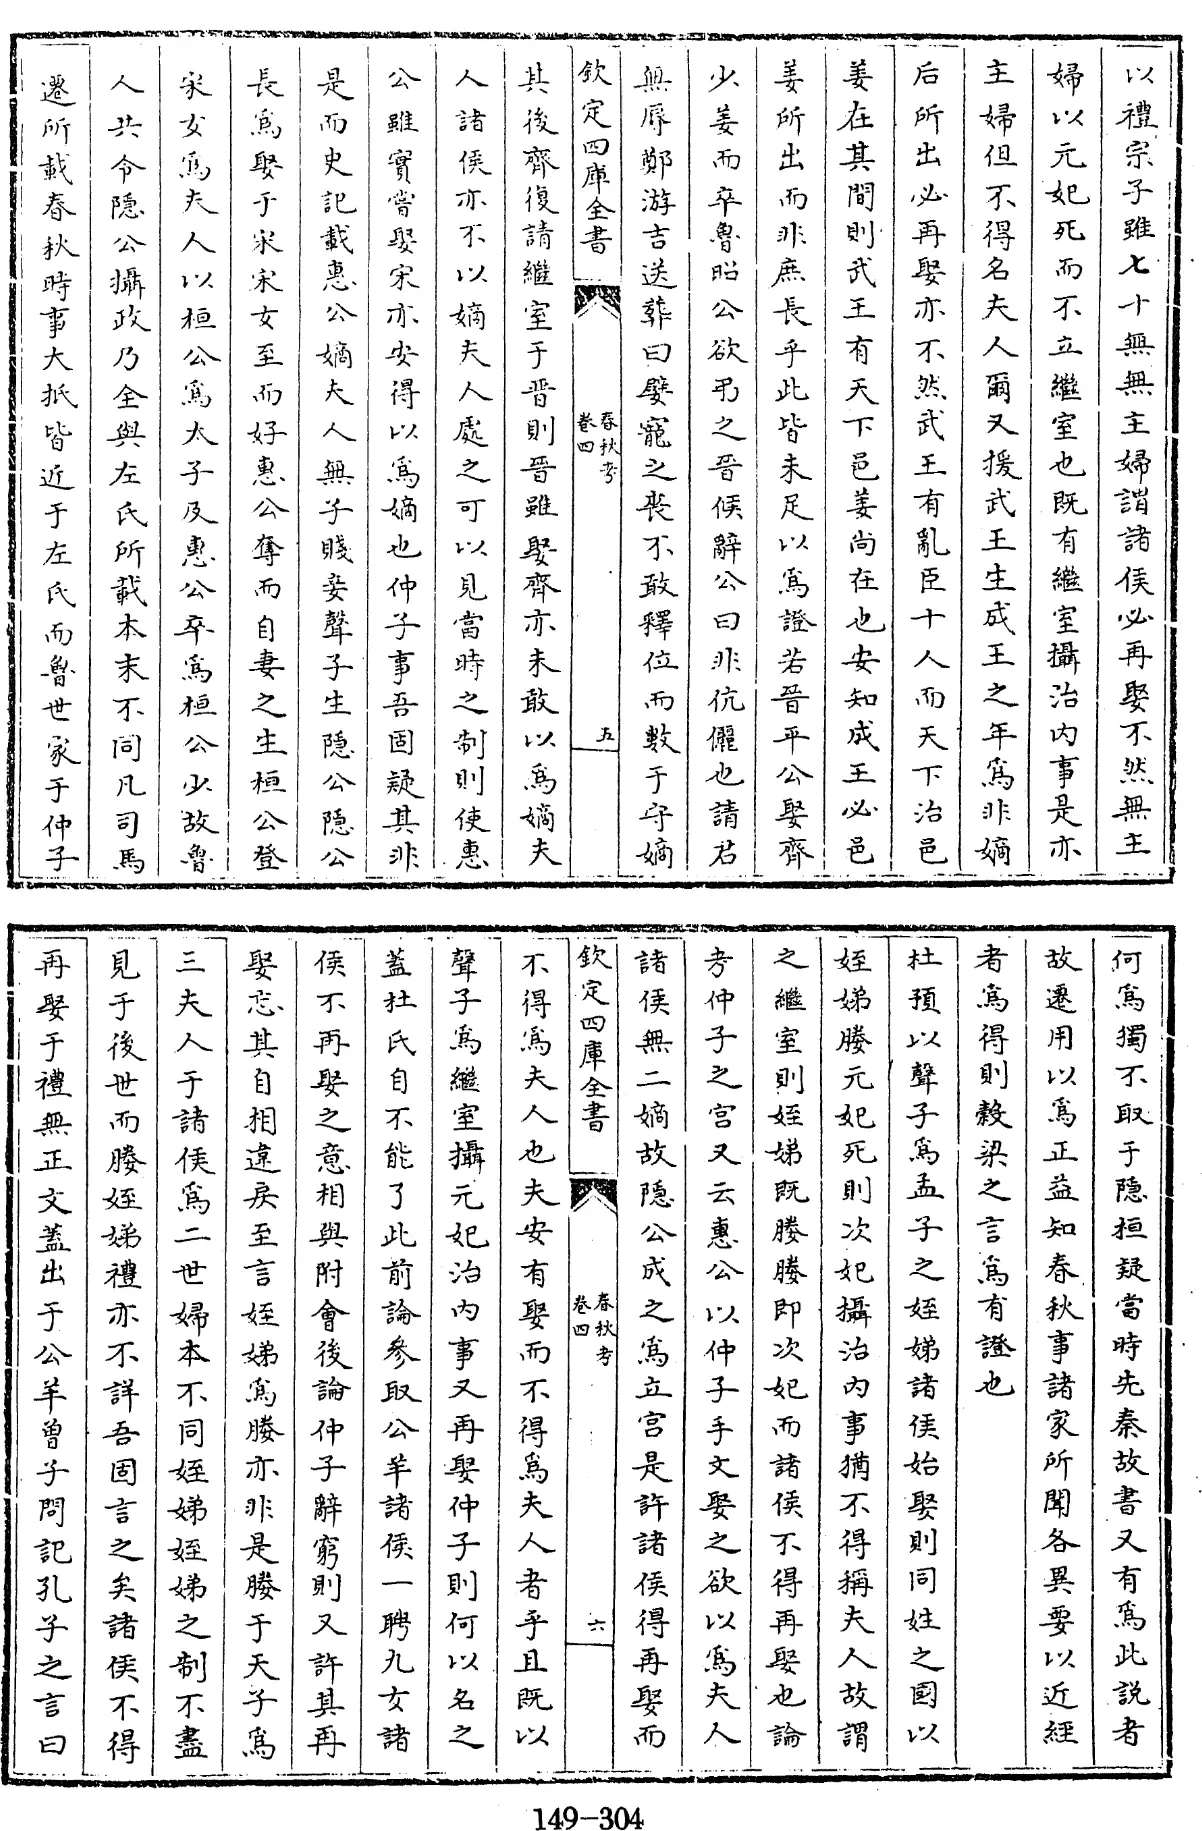 以禮宗子雖七十無無主婦謂諸侯必再娶不然無主
婦以元妃死而不立繼室也既有繼室攝治内事是亦
主婦但不得名夫人爾又援武王生成王之年為非嫡
后所出必再娶亦不然武王有亂臣十人而天下治邑
姜在其間則武王有天下邑姜尚在也安知成王必邑
姜所出而非庶長乎此皆未足以為證若晉平公娶齊
少姜而卒魯昭公欲弔之晉侯辭公曰非伉儷也請君
無辱鄭游吉送葬曰嬖寵之喪不敢擇位而數于守嫡
欽定四庫全書
春秋考
卷四
五
其後齊復請繼室于晉則晉雖娶齊亦未敢以為嫡夫
人諸侯亦不以嫡夫人處之可以見當時之制則使惠
公雖實嘗娶宋亦安得以為嫡也仲子事吾固疑其非
是而史記載惠公嫡夫人無子賤妾聲子生隠公隠公
長為娶于宋宋女至而好惠公奪而自妻之生桓公登
宋女為夫人以桓公為太子及惠公卒為桓公少故魯
人共令隠公攝政乃全與左氏所載本末不同凡司馬
遷所載春秋時事大抵皆近于左氏而魯世家于仲子
何為獨不取于隠桓疑當時先秦故書又有為此説者
故遷用以為正益知春秋事諸家所聞各異要以近經
者為得則糓梁之言為有證也
杜預以聲子為孟子之姪娣諸侯始娶則同姓之國以
姪娣媵元妃死則次妃攝治内事猶不得稱夫人故謂
之繼室則姪娣既媵媵即次妃而諸侯不得再娶也論
考仲子之宫又云惠公以仲子手文娶之欲以為夫人
諸侯無二嫡故隠公成之為立宫是許諸侯得再娶而
欽定四庫全書
春秋考
卷四
六
不得為夫人也夫安有娶而不得為夫人者乎且既以
聲子為繼室攝元妃治内事又再娶仲子則何以名之
蓋杜氏自不能了此前論參取公羊諸侯一聘九女諸
侯不再娶之意相與附會後論仲子辭窮則又許其再
娶忘其自相違戾至言姪娣為媵亦非是媵于天子為
三夫人于諸侯為二世婦本不同姪娣姪娣之制不盡
見于後世而媵姪娣禮亦不詳吾固言之矣諸侯不得
再娶于禮無正文蓋出于公羊曽子問記孔子之言曰
149-304